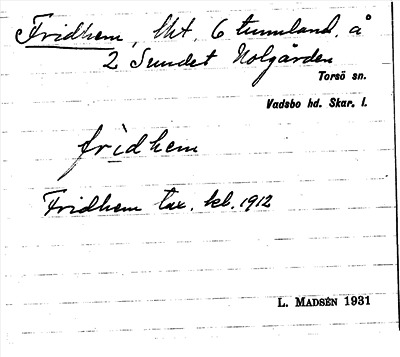 Fridhem, lht. 6 tunnland. å
2 Sundet Nolgården
Torsö sn.
Vadsbo hd. Skar. l.
frìdhem
Fridhem tax. kl. 1912
L. MADSÉN 1931